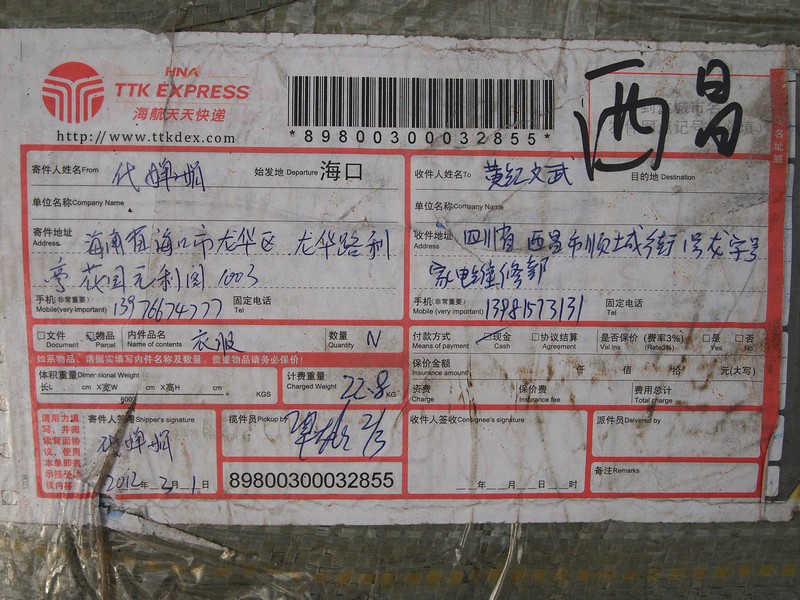 HNA
TTK EXPRESS
海航天天快递
http://www.ttkdex.com
*89800300032855*
西昌
寄件人姓名From 代婵娟 始发地 Departure 海口
单位名称Company Name
寄件地址 海南省海口市龙华区 龙华路利
Address
亭花园元利园1003
手机(非常重要) 13976674777 固定电话
Mobile(very important) Tel
收件人姓名To 黄红文武 目的地 Destination
单位名称Company Name
收件地址 四川省西昌市顺城街
Address
家电维修部
手机(非常重要) 13981573131 固定电话
Mobile (very important) Tel
□文件 物品 内件品名 衣服 数量 N
Document Parcel Name of contents Quantity
如系物品、请据实填写内件名称及数量,贵重物品请务必保价!
体积重量Dimensional Weight
长L cm ×宽W cm ×高H cm
6000 KGS
计费重量 22.8 KG
Charged Weight
付款方式 现金 □协议结算 是否保价 (费率3%) □是 □否
Means of payment Cash Agreement Val.Ins (Rate3%) Yes No
保价金额 仟 佰 拾 元(大写)
Insurance amount
资费 保价费 费用总计
Charge Insurance fee Total charge
请用力填
写,并阅
读背面协
议,使用
本单即表
示接受
寄件人签署Shipper's signature
2012年3月1日
揽件员Pickup by
89800300032855
收件人签收Consignee's signature
年 月 日 时
派件员Delivered by
备注Remarks